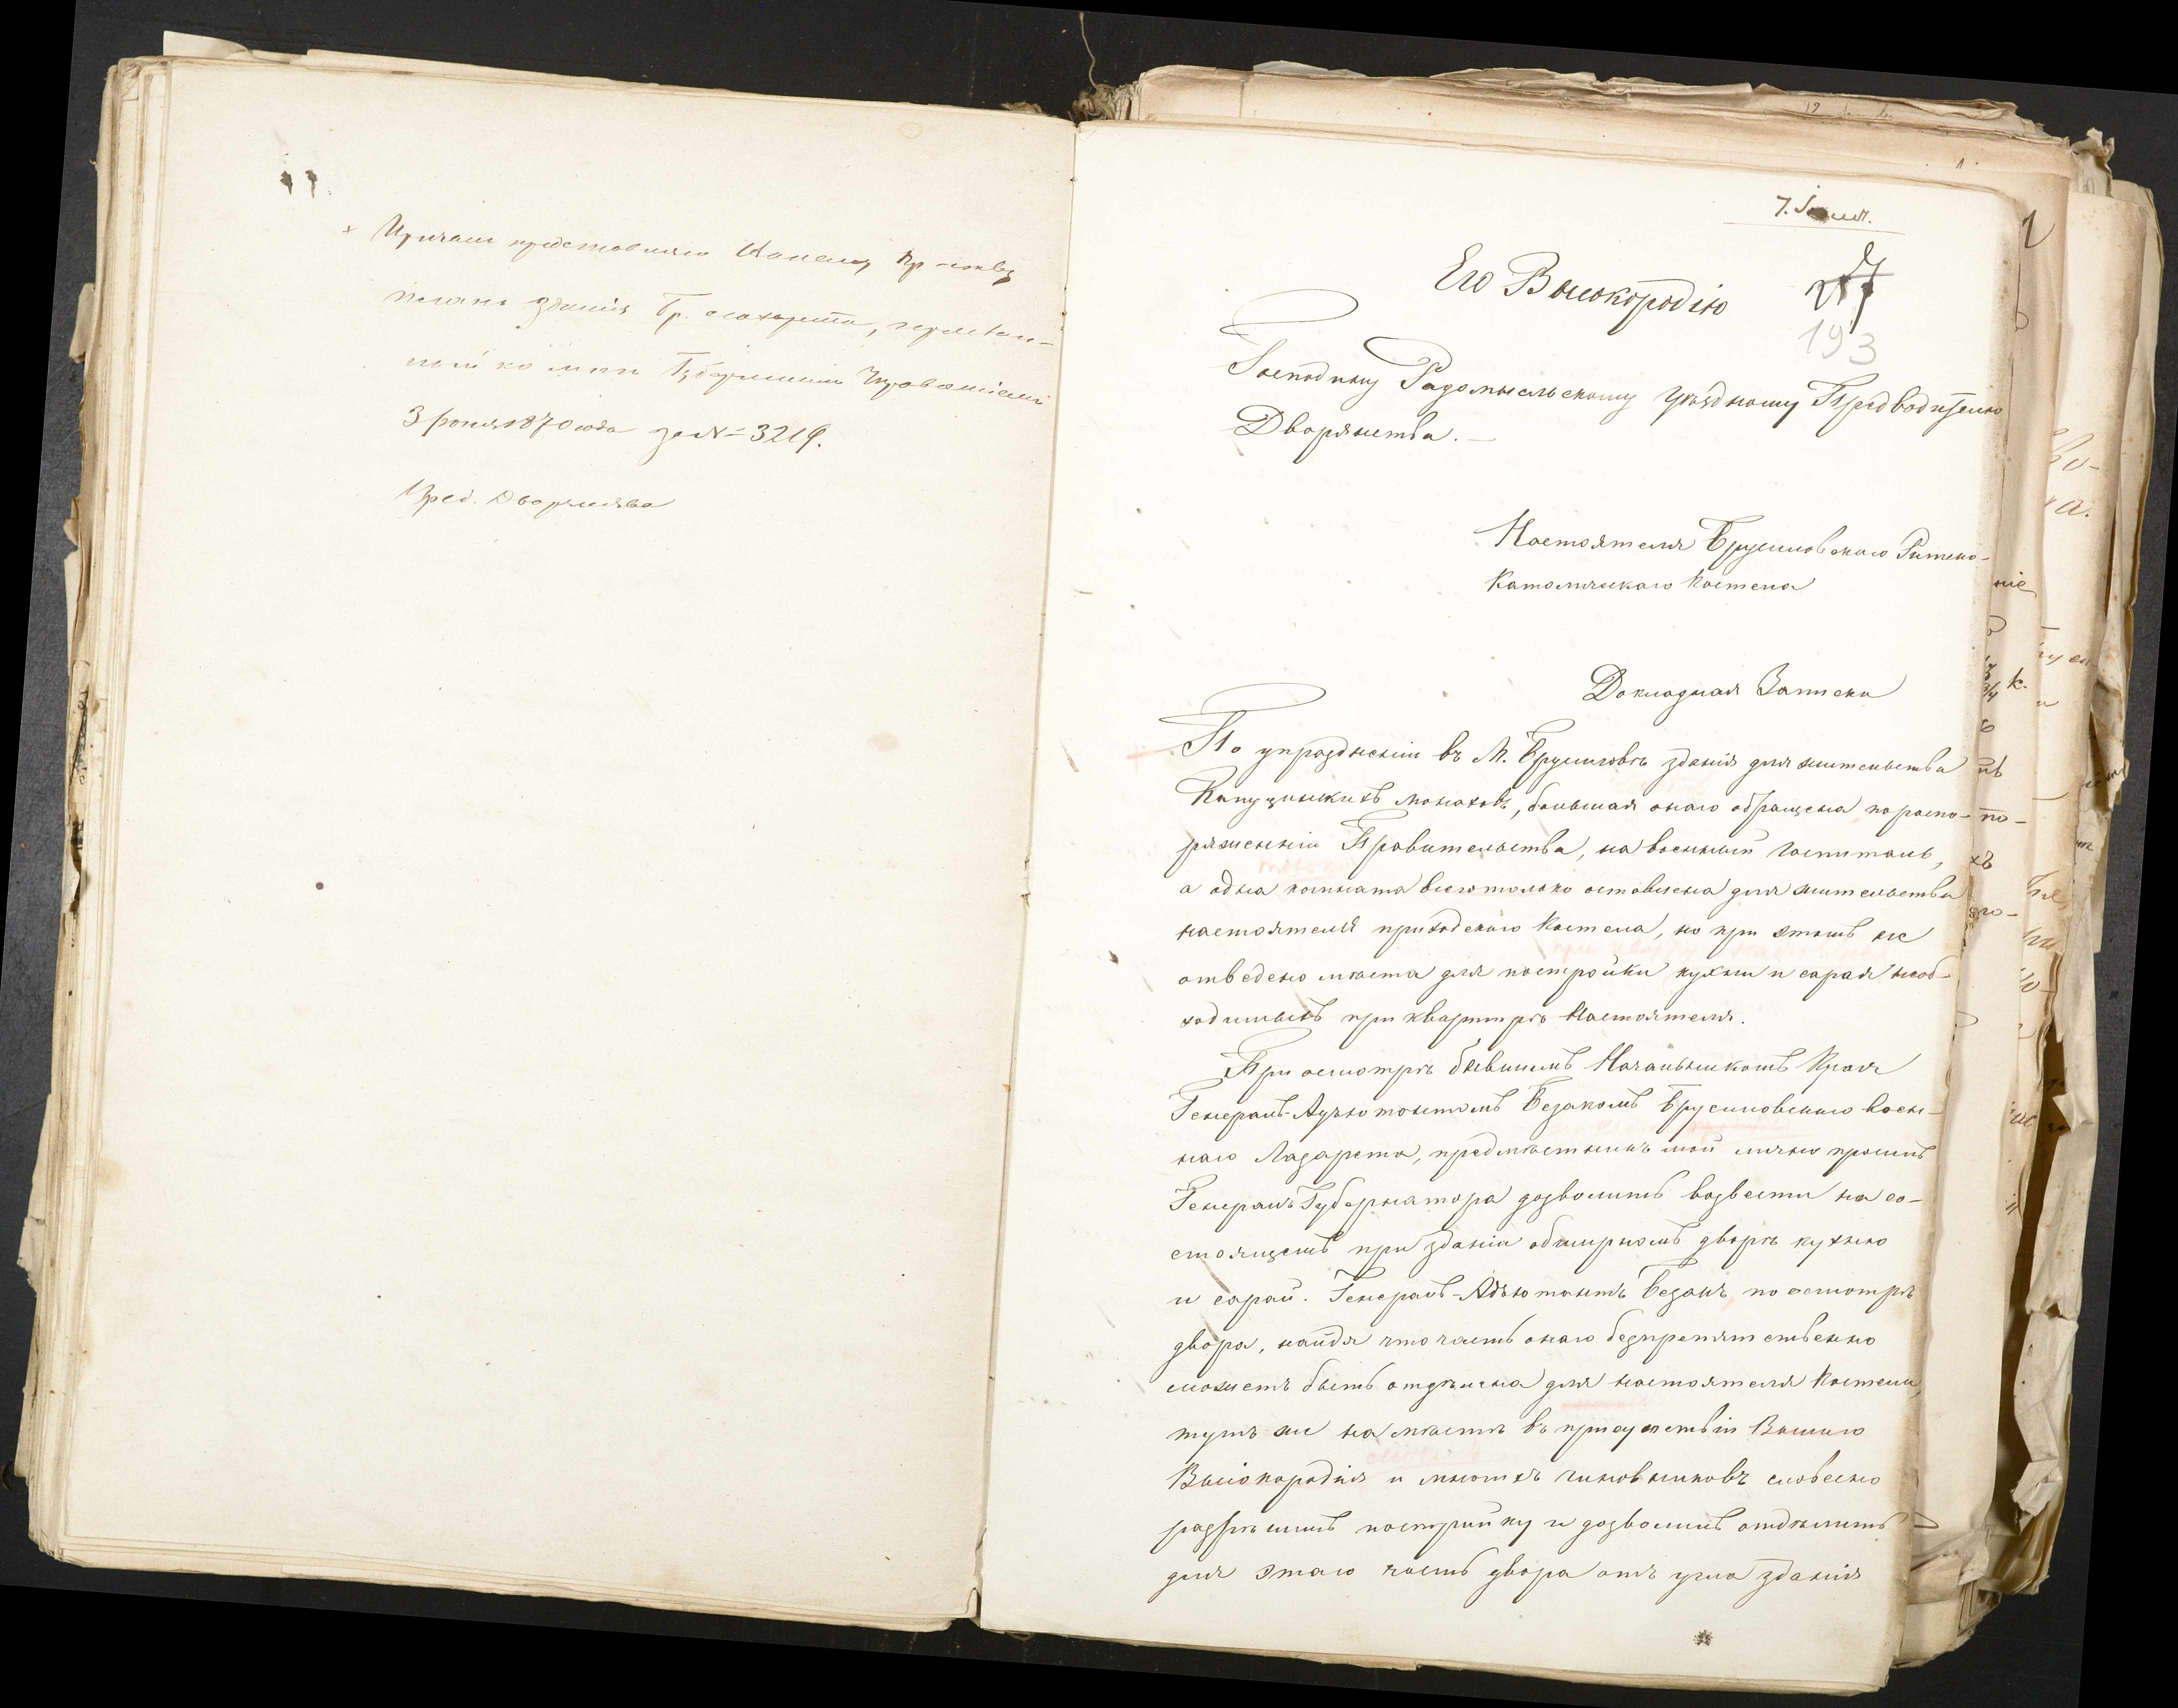 × Причемъ представляю Вашему Пр-ству
планъ зданія Бр. лазарета, переслан-
ный ко мнѣ Губернскимъ Правленіемъ
3 Іюня 1870 года за №= 3219.
Пред. Дворянства
7. Іюля.
Его Высокородію
193
Господину Радомысльскому Уѣздному Предводителю
Дворянства. —
Настоятеля Брусиловскаго Римско-
Католическаго Костела
Докладная Записка
По упраздненіи въ М. Брусиловѣ зданія для жительства
Капуцинскихъ монаховъ, большая онаго обращена по распо-
ряженію Правительства, на военный госпиталь,
а одна комната всего только оставлена для жительства
настоятеля приходскаго Костела, но при этомъ не
отведено мѣста для постройки кухни и сарая необ-
ходимыхъ при квартирѣ Настоятеля.
При осмотрѣ бывшимъ Начальникомъ Края
Генералъ-Адъютантомъ Безакомъ Брусиловскаго воен-
наго Лазарета, предмѣстникъ мой лично просилъ
Генералъ Губернатора дозволить возвести на со-
стоящемъ при зданіи обширномъ дворѣ кухню
и сарай. Генералъ-Адъютантъ Безакъ по осмотрѣ
двора, найдя что часть онаго безпрепятственно
можетъ быть отдѣлена для настоятеля Костела,
тутъ же на мѣстѣ въ присутствіи Вашего
Высокородія и многихъ чиновниковъ словесно
разрѣшилъ постройку и дозволилъ отдѣлить
для этаго часть двора отъ угла зданія